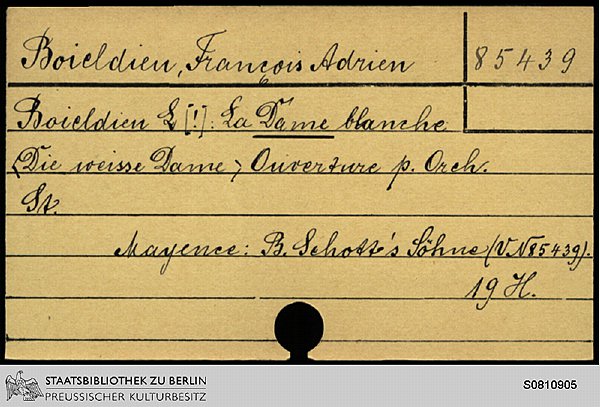 Boieldieu, François Adrien 85439
Boieldieu L [!]: La Dame blanche
<Die weisse Dame> Ouverture p. Orch.
St.
Mayence: B. Schott's Söhne (V.N 85439).
19 H.
STAATSBIBLIOTHEK ZU BERLIN
PREUSSISCHER KULTURBESITZ
S0810905